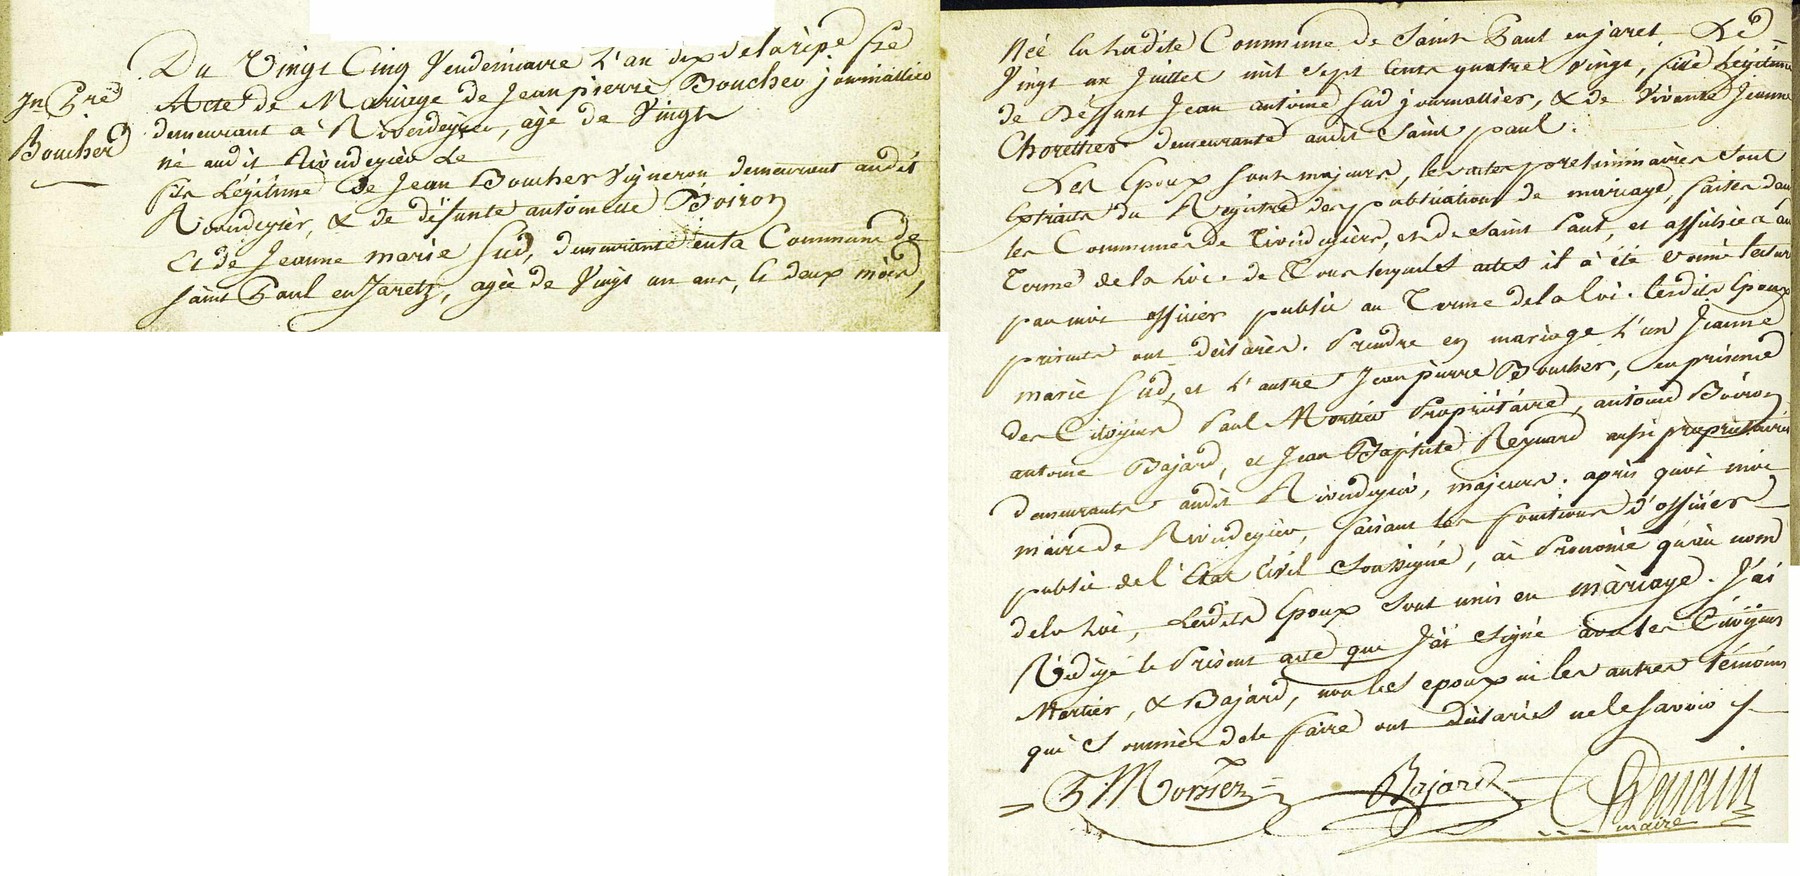 Jn Pre
Boucher
Du Vingt Cinq Vendemiaire L'an dix de la rèpe frse
Acte de Mariage de Jean pierre Boucher journallier
demeurant à Rivedegier, agé de Vingt
né audit Rivedegier Le
fils Légitime de Jean Boucher Vigneron demeurant audit
Rivedegier, & de défunte antoinette Boiron
Et de Jeanne marie Sud, demeurante en la Commune de
Saint Paul en Jaretz, agée de Vingt un ans, & deux mois,
Née en ladite Commune de Saint Paul en jaret Le
Vingt un Juillet mil Sept Cents quatre Vingt, fille Légitime
de Déffunt Jean antoine Sud journallier, & de Vivante Jeanne
Chorettier demeurante audit Saint paul.
Les Epoux sont majeurs, les actes preliminaires Sont
Extraits du Registre des publications de mariage, faites dans
les Communes de Rivedegier, et de Saint Paul, et affichés au
Terme de la Loi. de Tous lesquels actes il à été donné lecture
par moi officier public au Terme de la loi. lesdits Epoux
présents ont déclarés. Prendre en mariage L'un Jeanne
marie Sud, et L'autre Jean pierre Boucher, en présence
des Citoyens Paul Mortier Propriétaire, antoine Boiron
antoine Bajard, et Jean Baptiste Reynard aussi propriétaires
demeurants audit Rivedegier, majeurs. après quoi moi
maire de Rivedegier, faisant les fonctions d'officier
public de l'Etat Civil Soussigné, ai Prononcé qu'au nom
de la Loi, Lesdits Epoux Sont unis en mariage. J'ai
Rédigé le Présent acte que J'ai Signé avec les Citoyens
Mortier, & Bajard, non les epoux ni les autres témoins
qui Sommés de le faire ont déclarés ne le Savoir
P. Mortier Bajard
maire